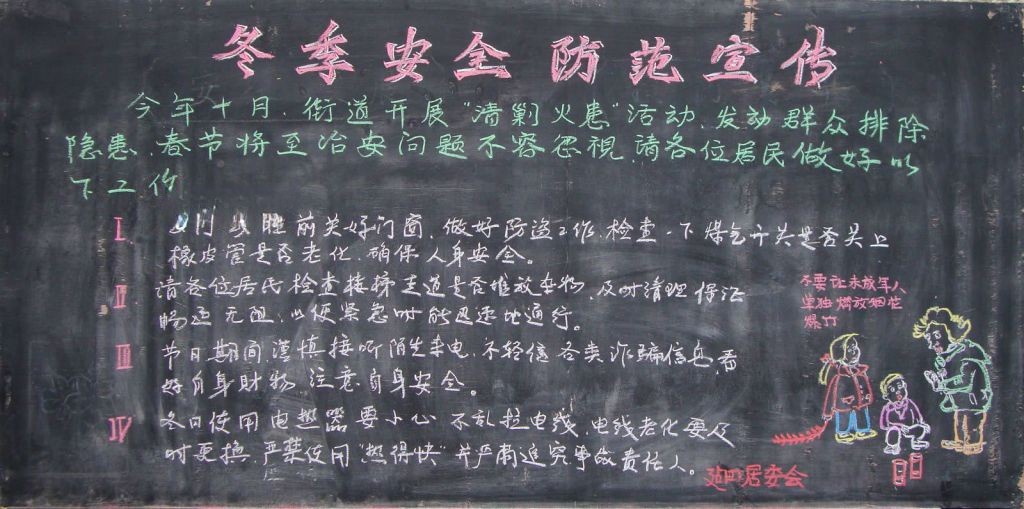 冬季安全防范宣传
今年十月,街道开展"清剿火患"活动,发动群众排除
隐患,春节将至治安问题不容忽視,请各位居民做好以
下工作
I 门 睡前关好门窗,做好防盗工作,检查一下煤气开关是否关上
橡皮管是否老化,确保人身安全。
II 请各位居民检查楼梯走道是否堆放杂物,及时清理保证
畅通无阻,以便紧急时能迅速地通行。
III 节日期间,谨慎接听陌生来电,不轻信各类诈骗信息,看
好自身财物,注意自身安全。
IV 冬日使用电热器要小心,不乱拉电线,电线老化要及
时更换,严禁使用"热得快"并严肃追究事故责任人。
不要让未成年人
单独燃放烟花
爆竹
居委会